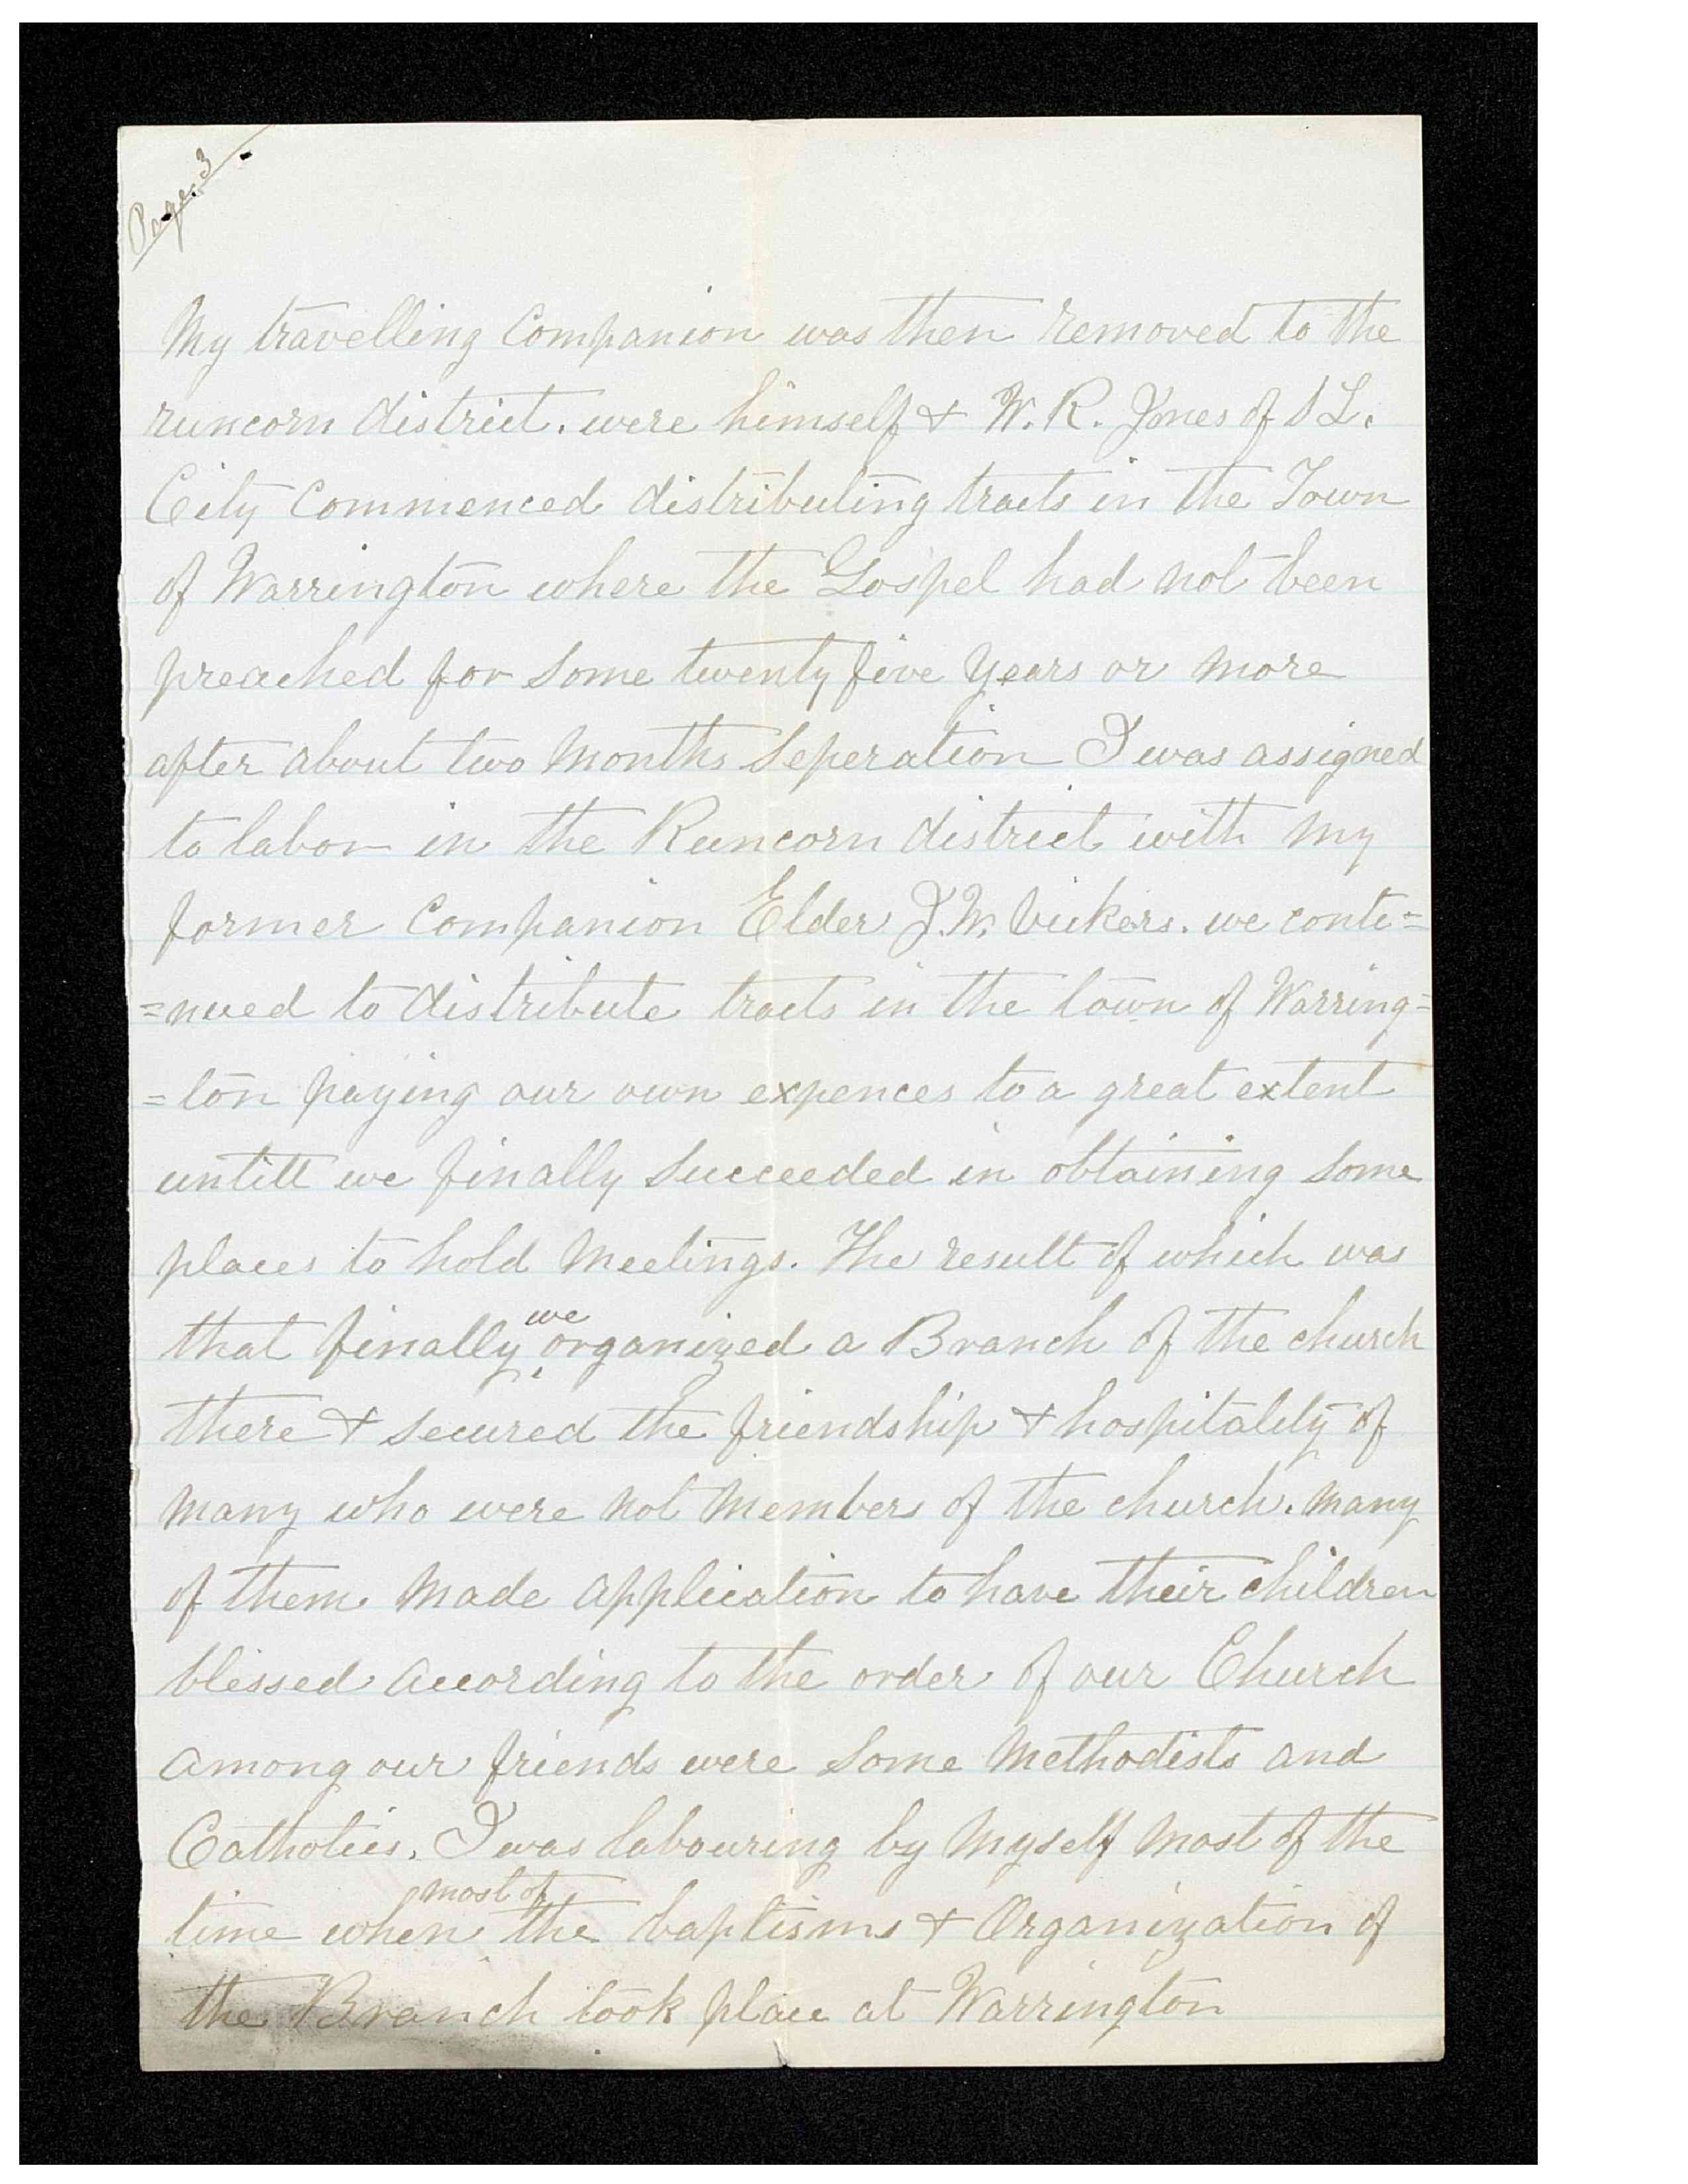 Page. 3
My travelling Companion was then removed to the
runcorn district. were himself & W. R. Jones of S L.
City Commenced distributing tracts in the Town
of Warrington where the Gospel had not been
preached for some twenty five years or more
after about two Months Seperation I was assigned
to labor in the Runcorn district with my
former Companion Elder J. W. Vickers. we conti=
=nued to distribute tracts in the town of Warring=
=ton paying our own expences to a great extent
untill we finally Succeeded in obtaining some
places to hold Meetings. The result of which was
that finally we organized a Branch of the church
there & secured the friendship & hospitality of
many who were not Members of the church. many
of them made application to have their children
blessed according to the order of our Church
among our friends were Some Methodists and
Catholics. I was labouring by Myself Most of the
time when most of the baptisms & Organization of
the Branch took place at Warrington